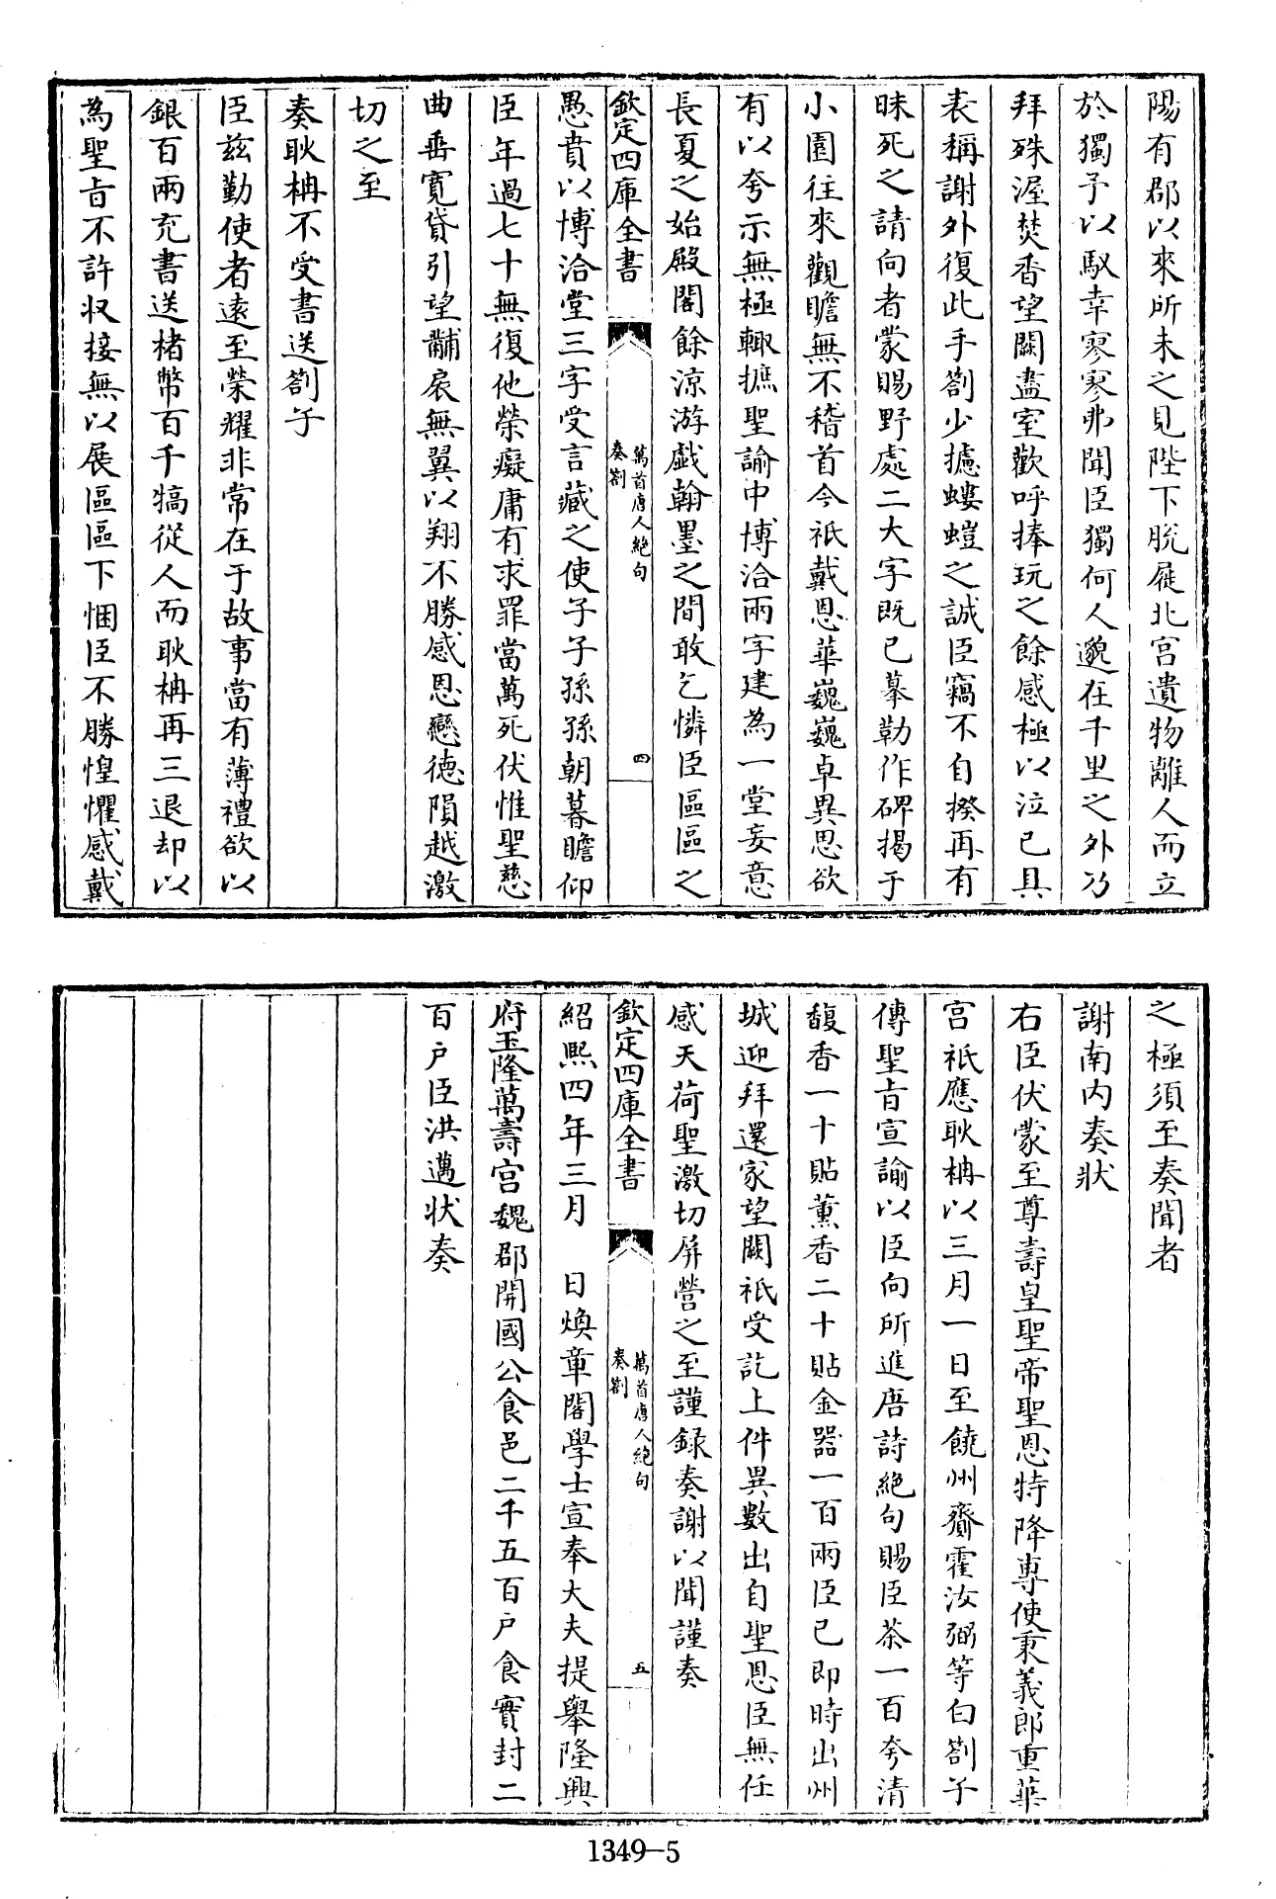 陽有郡以來所未之見陛下脱屣北宫遺物離人而立
於獨予以馭幸寥寥弗聞臣獨何人邈在千里之外乃
拜殊渥焚香望闕盡室歡呼捧玩之餘感極以泣已具
表稱謝外復此手劄少攄螻螘之誠臣竊不自揆再有
昧死之請向者蒙賜野處二大字既已摹勒作碑揭于
小園往來觀瞻無不稽首今祇戴恩華巍巍卓異思欲
有以夸示無極輒摭聖諭中博洽兩字建為一堂妄意
長夏之始殿閣餘涼游戲翰墨之間敢乞憐臣區區之
欽定四庫全書
萬首唐人絶句
奏劄
四
愚賁以博洽堂三字受言藏之使子子孫孫朝暮瞻仰
臣年過七十無復他榮癡庸有求罪當萬死伏惟聖慈
曲垂寛貸引望黼扆無翼以翔不勝感恩戀德隕越激
切之至
奏耿柟不受書送劄子
臣兹勤使者逺至榮耀非常在于故事當有薄禮欲以
銀百兩充書送楮幣百千犒從人而耿柟再三退却以
為聖㫖不許収接無以展區區下悃臣不勝惶懼感戴
之極須至奏聞者
謝南内奏狀
右臣伏蒙至尊壽皇聖帝聖恩特降専使秉義郎重華
宫祇應耿柟以三月一日至饒州齎霍汝弼等白劄子
傳聖㫖宣諭以臣向所進唐詩絶句賜臣茶一百夸清
馥香一十貼薰香二十貼金器一百兩臣已即時出州
城迎拜還家望闕祇受訖上件異數出自聖恩臣無任
感天荷聖激切屏營之至謹録奏謝以聞謹奏
欽定四庫全書
萬首唐人絶句
奏劄
五
紹熙四年三月　日煥章閣學士宣奉大夫提舉隆興
府玉隆萬壽宫魏郡開國公食邑二千五百户食實封二
百户臣洪邁狀奏
1349-5